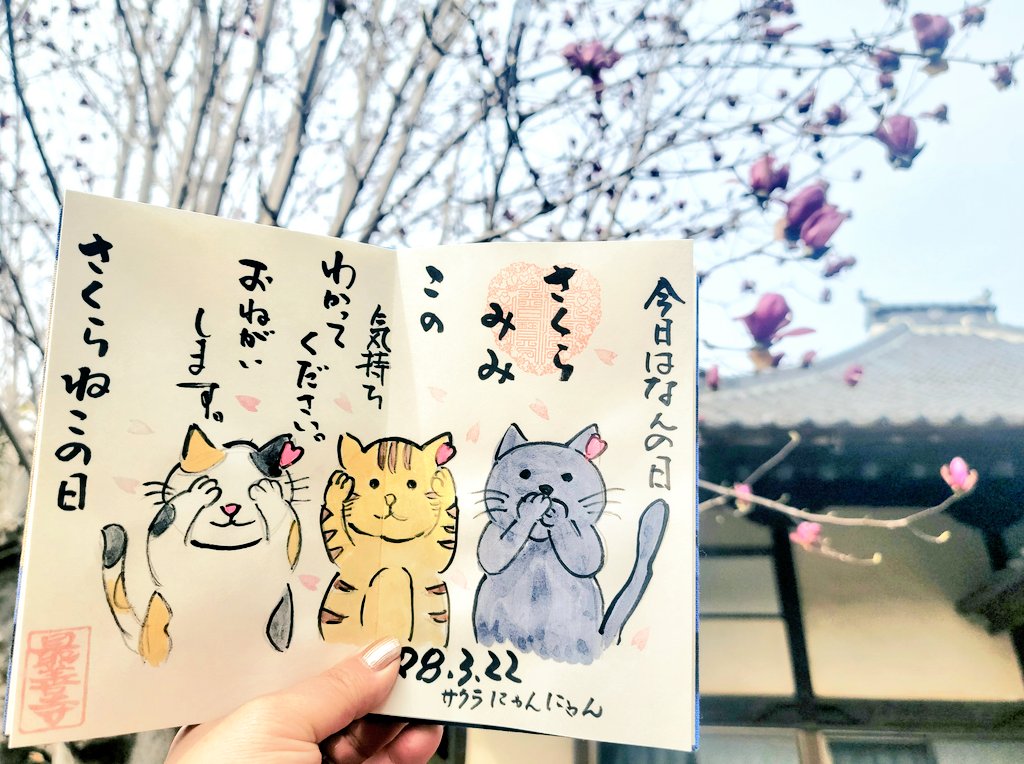 今日はなんの日
さくら
みみ
この
気持ち
わかって
ください。
おねがい
します。
さくらねこの日
28.3.22
サクラにゃんにゃん
最善寺